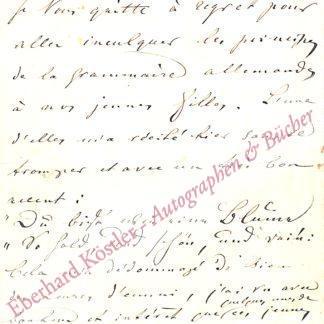 je vous quitte à regret pour
aller inculquer les principes
de la grammaire allemande
à nos jeunes filles. L'une
d'elles m'a récité hier sans se
tromper et avec un très bon
accent :
"Du bist wie eine Blume
"So hold und schön, und rein!
Cela dédommage de bien
d'ennui, j'ai vu avec
et intérêt que ces jeunes
Eberhard Köstler - Autographen & Bücher